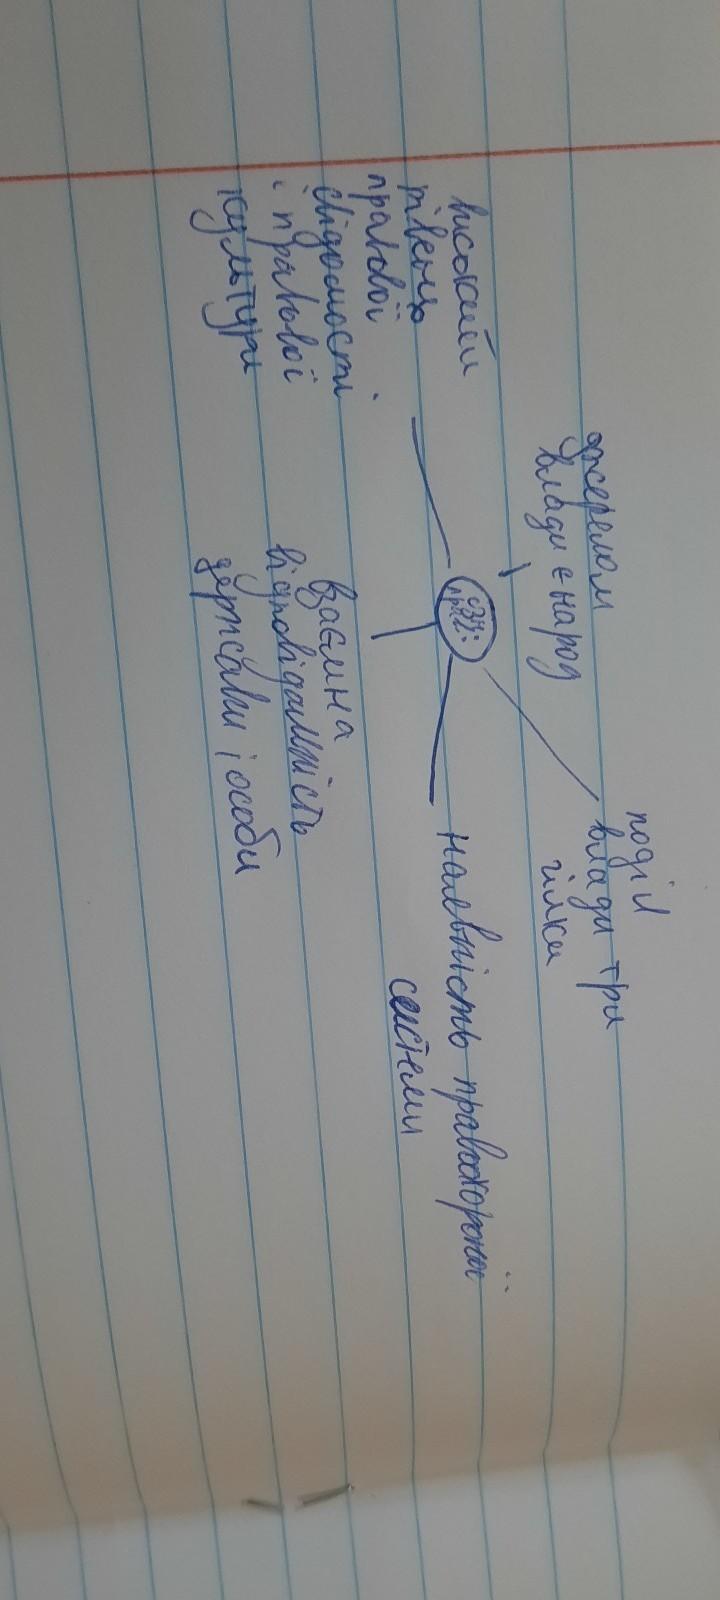 джерелом
влади є народ
поділ
влади три
гілки
високий
рівень
правової
свідомості
і правової
культури
наявність правоохоронної
системи
взаємна
відповідальність
держави і особи